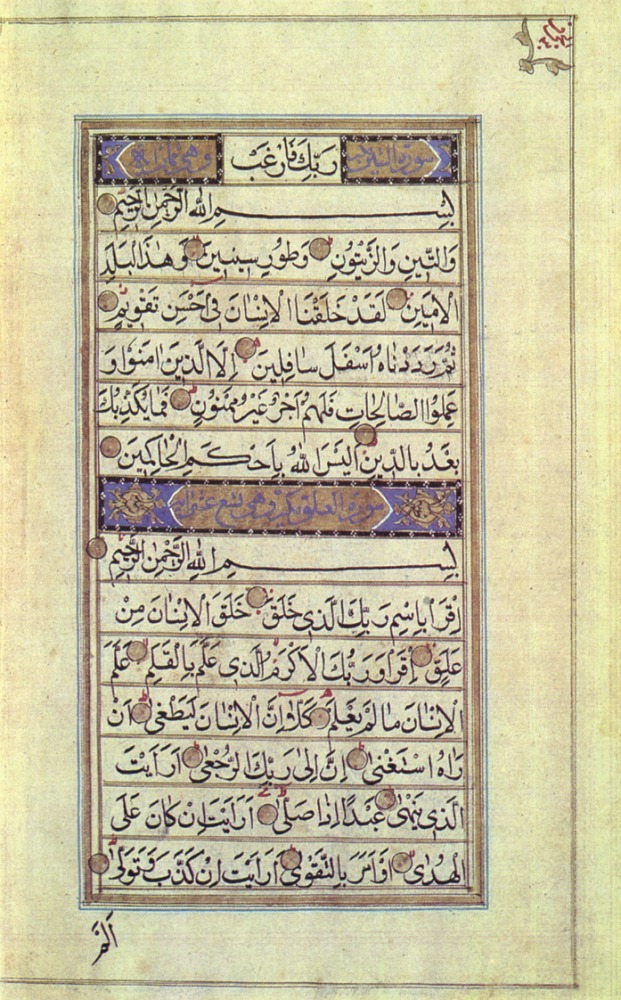 سورة التين رَبِّكَ فَارْغَبْ وهي ثمان اية
بِسْمِ اللهِ الرَّحْمٰنِ الرَّحِيْمِ
وَالتِّينِ وَالزَّيْتُونِ وَطُورِ سِينِينَ وَهٰذَا الْبَلَدِ
الْاَمِينِ لَقَدْ خَلَقْنَا الْاِنْسَانَ فِي اَحْسَنِ تَقْوِيمٍ
ثُمَّ رَدَدْنَاهُ اَسْفَلَ سَافِلِينَ اِلَّا الَّذِينَ اٰمَنُوا وَ
عَمِلُوا الصَّالِحَاتِ فَلَهُمْ اَجْرٌ غَيْرُ مَمْنُونٍ فَمَا يُكَذِّبُكَ
بَعْدُ بِالدِّينِ اَلَيْسَ اللهُ بِاَحْكَمِ الْحَاكِمِينَ
سورة العلق مكية وهي تسع عشر اية
بِسْمِ اللهِ الرَّحْمٰنِ الرَّحِيْمِ
اِقْرَاْ بِاسْمِ رَبِّكَ الَّذِي خَلَقَ خَلَقَ الْاِنْسَانَ مِنْ
عَلَقٍ اِقْرَاْ وَرَبُّكَ الْاَكْرَمُ الَّذِي عَلَّمَ بِالْقَلَمِ عَلَّمَ
الْاِنْسَانَ مَا لَمْ يَعْلَمْ كَلَّا اِنَّ الْاِنْسَانَ لَيَطْغٰى اَنْ
رَاٰهُ اسْتَغْنٰى اِنَّ اِلٰى رَبِّكَ الرُّجْعٰى اَرَاَيْتَ
الَّذِي يَنْهٰى عَبْدًا اِذَا صَلّٰى اَرَاَيْتَ اِنْ كَانَ عَلَى
الْهُدٰى اَوْ اَمَرَ بِالتَّقْوٰى اَرَاَيْتَ اِنْ كَذَّبَ وَتَوَلّٰى
اَلَمْ